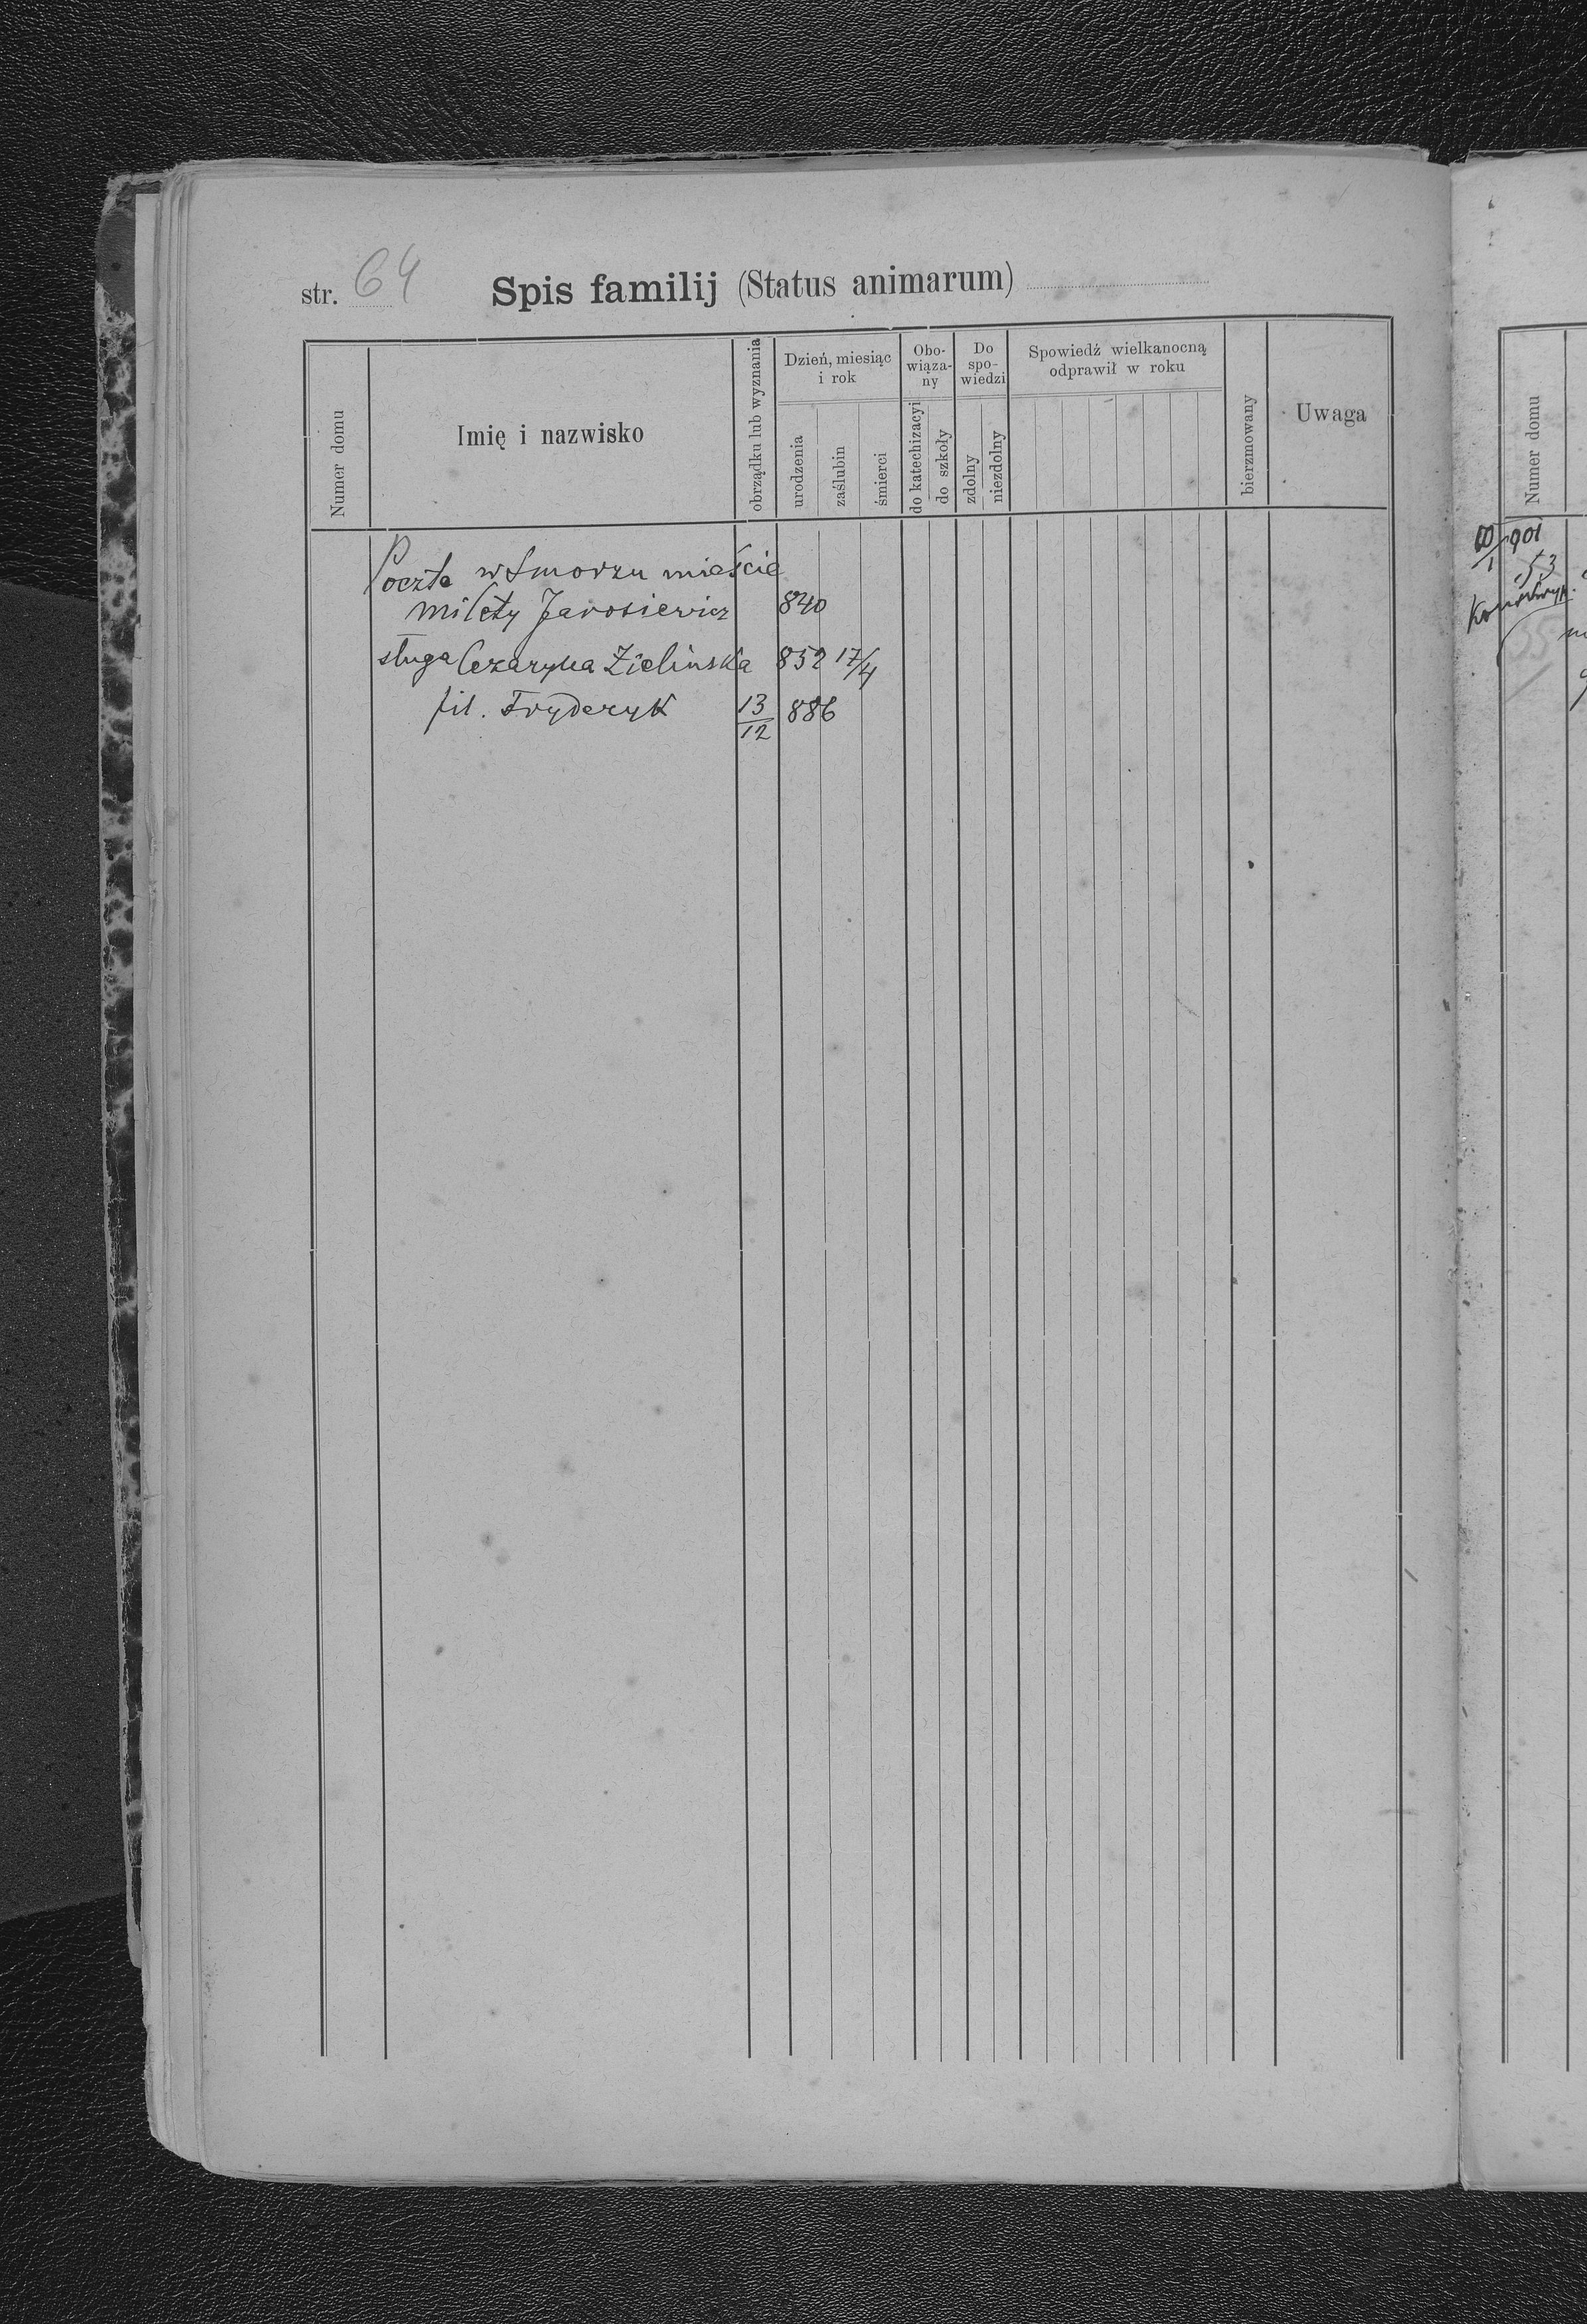 str. 64 Spis familij (Status animarum)
Numer domu
Imię i nazwisko
obrządku lub wyznania
Dzień, miesiąc
i rok
urodzenia
zaślubin
śmierci
Obo-
wiąza-
ny
do katechizacyi
do szkoły
Do
spo-
wiedzi
zdolny
niezdolny
Spowiedź wielkanocną
odprawił w roku
bierzmowany
Uwaga
Poczta w Smorzu mieście
Milety Jarosiewicz 840
sługa Cezaryna Zielinska 852 17/4
fil. Fryderyk 13/12 886
Numer domu
901
53
55